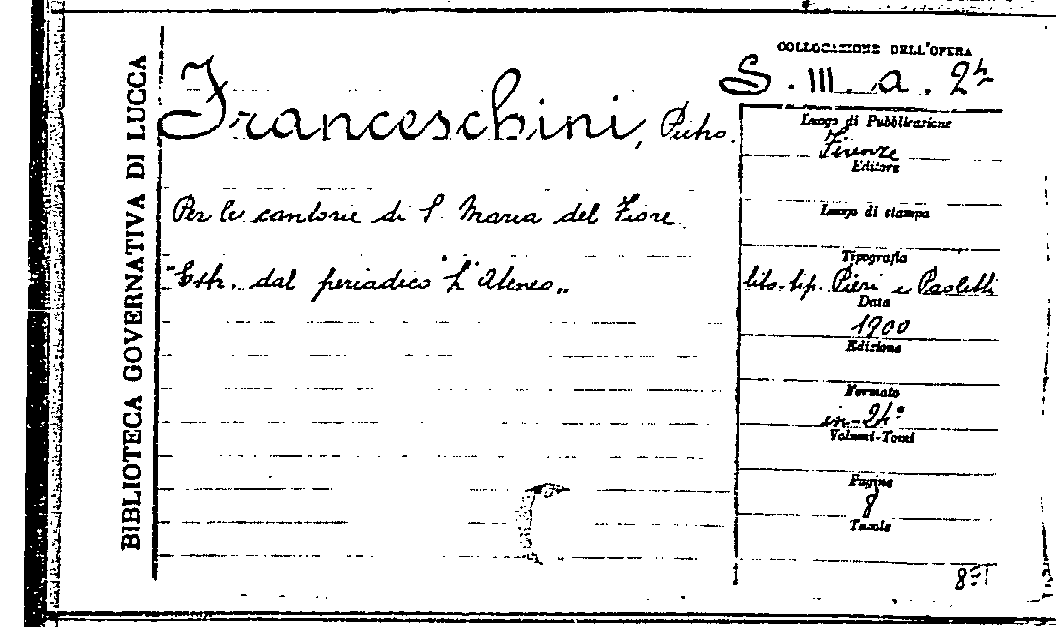 BIBLIOTECA GOVERNATIVA DI LUCCA
Franceschini, Pietro.
Per le cantorie di S. Maria del Fiore.
"Estr. dal periodico "L'Ateneo„
COLLOCAZIONE DELL'OPERA
S. III. a. 24
Luogo di Pubblicazione
Firenze
Editore
Luogo di stampa
Tipografia
lito-tip. Pieri e Paoletti
Data
1900
Edizione
Formato
in-24°
Volumi-Tomi
Pagine
8
Tavole